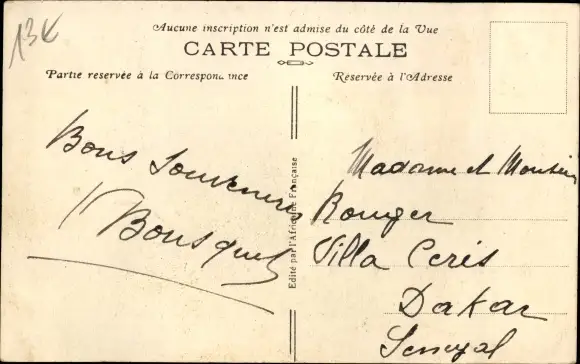 13K
Aucune inscription n'est admise du côté de la Vue
CARTE POSTALE
Partie reservée à la Correspondance
Reservée à l'Adresse
Bons Souvenirs
Bousquet
Edité par l'Afrique Française
Madame et Monsieur
Rouger
Villa Cerès
Dakar
Senegal